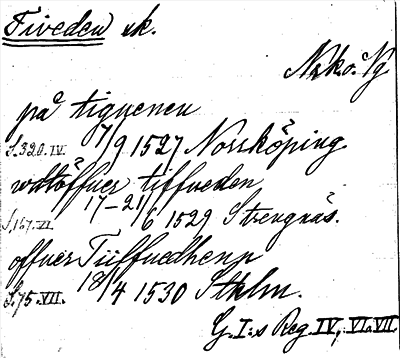 Tiveden sk.
Nrk o. Vg
på tiguenen
7/9 1527 Norrköping
S. 320. IV.
wdtöffuer tiffueden
17-21/6 1529 Strengnäs.
S. 167. VI.
offuer Tiiffuedhenn
18/4 1530 Sthlm.
S. 75. VII.
G. I:s Reg. IV, VI. VII.